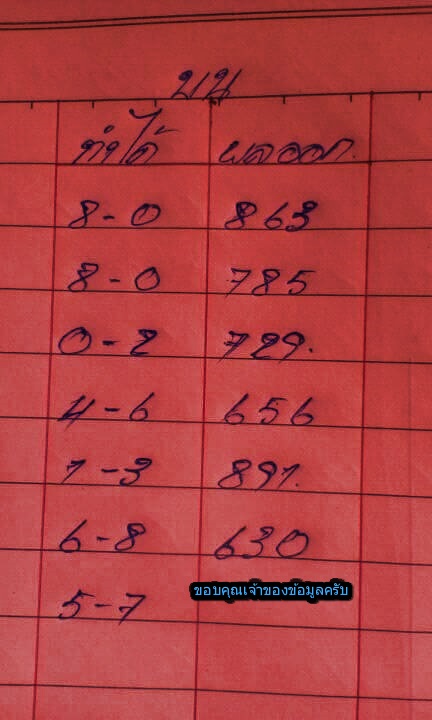 บน
ทำได้ ผลออก.
8-0 863
8-0 785
0-2 729.
4-6 656
1-3 891.
6-8 630
ขอบคุณเจ้าของข้อมูลครับ
5-7